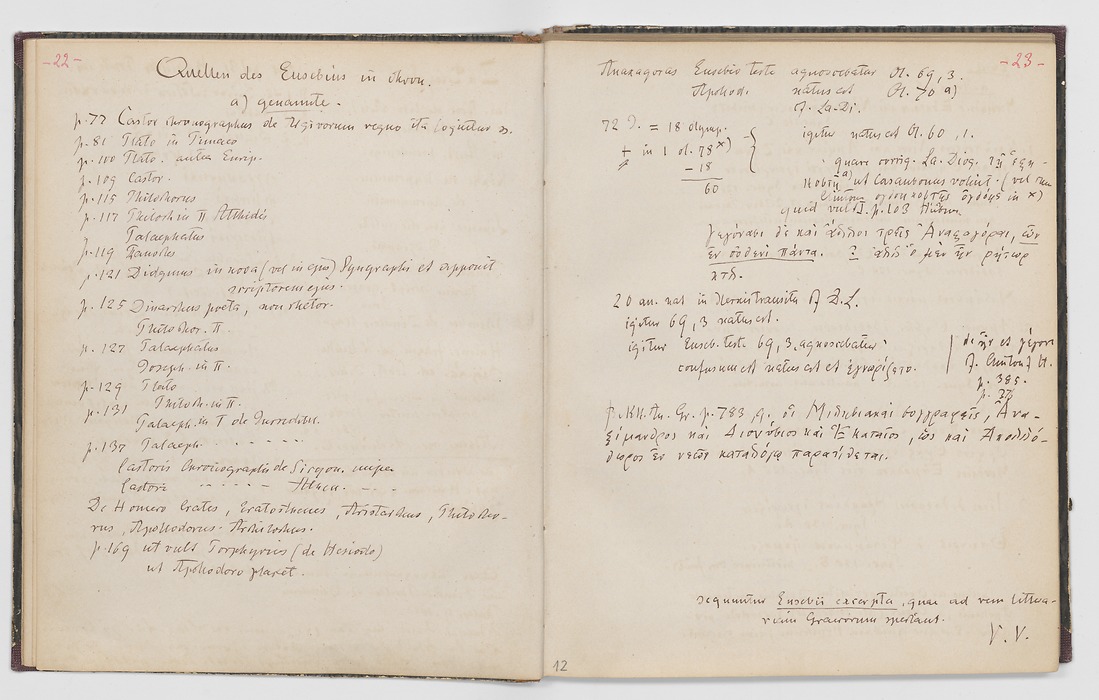 -22-
Quellen des Eusebius in
a) genannte.
p. 77 Castor chronographus de regno ita loquitur
p. 81 Plato in Timaeo
p. 100 Plato. Eurip.
p. 109 Castor.
p. 115 Philochorus
p. 117 Philoch. in II Atthidis
Palaephatus
p. 119
p. 121 Didymus in (vel in ejus) Syngraphis et apponit
scriptorem ejus.
p. 125 Dinarchus poeta, non rhetor.
Philochor. II.
p. 127 Palaephatus
Joseph. in II.
p. 129 Plato
p. 131 Philoch. in II.
Palaeph. in I de Incredib.
p. 137 Palaeph.
Castoris Chronographia de Sicyon.
Castoris Athen.
De Homero Crates, Eratosthenes, Aristarchus, Philocho-
rus, Apollodorus. Archilochus.
p. 169 ut vult Porphyrius (de Hesiodo)
ut Apollodoro placet.
-23-
Anaxagoras Eusebio teste agnoscebatur Ol. 69, 3.
Apollod. natus est Ol. 70 a)
La. Di.
72 J. = 18 Olymp.
+ in 1 ol. 78 x)
- 18
60
igitur natus est Ol. 60, 1.
quare corrig. La. Diog.
ut Casaubonus voluit. (vel
in x)
quid vult I. p. 103
γεγόνασι δὲ καὶ ἄλλοι τρεῖς Ἀναξαγόραι, ὧν
ἐν οὐδενὶ πάντα. ὁ μὲν ἦν ῥήτωρ
κτλ.
20 an. nat in Xerxis transitu D. L.
igitur 69, 3 natus est.
igitur Euseb. teste 69, 3 agnoscebatur
confusum est natus est et ἐγνωρίζετο.
ἦν et γέγονε
p. 385.
An. Gr. p. 783 οἱ Μιλησιακοὶ συγγραφεῖς, Ἀνα-
ξίμανδρος καὶ Διονύσιος καὶ Ἑκαταῖος, ὡς καὶ Ἀπολλό-
δωρος ἐν νεῶν καταλόγῳ παρατίθεται.
sequuntur Eusebii excerpta, quae ad rem littera-
riam Graecorum spectant.
V. V.
12